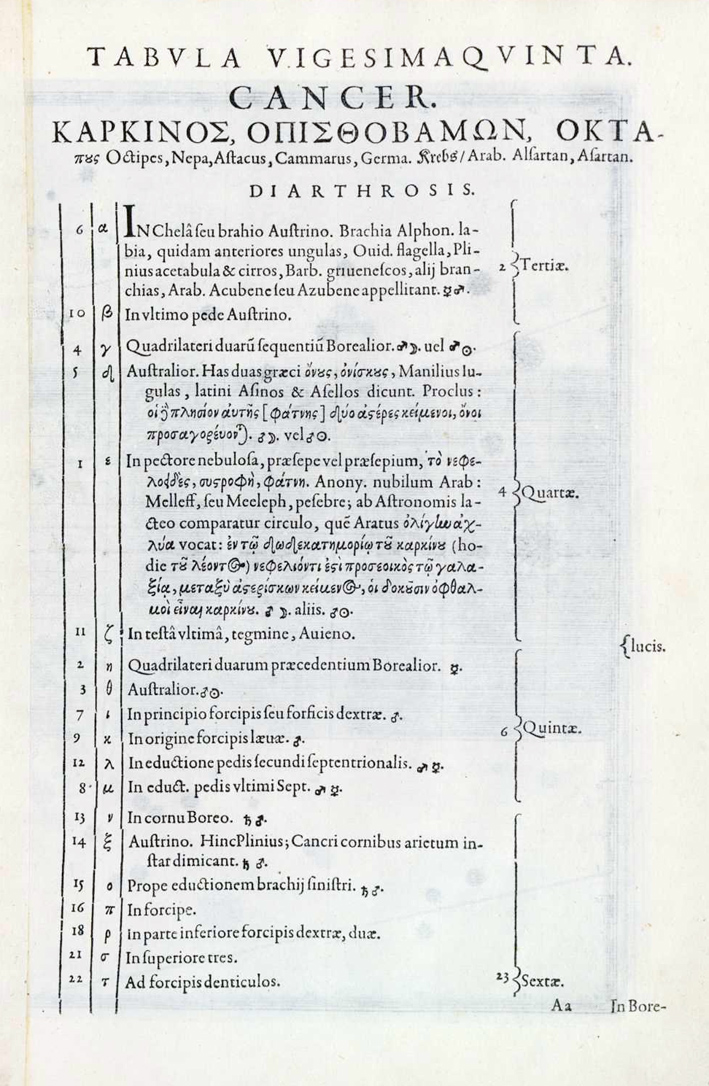 TABVLA VIGESIMAQVINTA.
CANCER.
ΚΑΡΚΙΝΟΣ, ΟΠΙΣΘΟΒΑΜΩΝ, ΟΚΤΑ-
πȣς Octipes, Nepa, Astacus, Cammarus, Germa. Krebs/ Arab. Alsartan, Asartan.
DIARTHROSIS.
6 α IN Chelâ seu brahio Austrino. Brachia Alphon. la-
bia, quidam anteriores ungulas, Ouid. flagella, Pli-
nius acetabula & cirros, Barb. gnuenescos, alij bran- 2 {Tertiæ.
chias, Arab. Acubene seu Azubene appellitant. ☿♂.
10 β In vltimo pede Austrino.
4 γ Quadrilateri duarū sequentiū Borealior. ♂☽. uel ♂☉.
5 δ Australior. Has duas græci ὄνȣς, ὀνίσκȣς, Manilius iu-
gulas, latini Asinos & Asellos dicunt. Proclus:
οἱ πλησίον αὐτῆς [φάτνης] δύο ἀστέρες κείμενοι, ὄνοι
προσαγορέυον. ♂☽. vel ♂☉.
1 ε In pectore nebulosa, præsepe vel præsepium, τὸ νεφε-
λοειδὲς, συστροφὴ, φάτνη. Anony. nubilum Arab:
Melleff, seu Meeleph, pesebre; ab Astronomis la- 4 {Quartæ.
cteo comparatur circulo, quē Aratus ὀλίγἰω ἀχ-
λύα vocat: ἐν τῷ δωδεκατημορίῳ τȣ͂ καρκίνȣ (ho-
die τȣ͂ λέοντος) νεφελιόντι ἐστὶ προσεοικὸς τῷ γαλα-
ξίᾳ, μεταξὺ ἀστερίσκων κείμενος, οἱ δοκȣ͂σιν ὀφθαλ-
μοὶ εἶναι καρκίνȣ. ♂ ☽. aliis. ♂☉.
11 ζ In testâ vltimâ, tegmine, Auieno.
{lucis.
2 η Quadrilateri duarum præcedentium Borealior. ☿.
3 θ Australior. ♂☉.
7 ι In principio forcipis seu forficis dextræ. ♂.
9 κ In origine forcipis læuæ. ♂. 6 {Quintæ.
12 λ In eductione pedis secundi septentrionalis. ♂ ☿.
8 μ In educt. pedis vltimi Sept. ♂ ☿.
13 ν In cornu Boreo. ♄ ♂.
14 ξ Austrino. Hinc Plinius; Cancri cornibus arietum in-
star dimicant. ♄ ♂.
15 ο Prope eductionem brachij sinistri. ♄ ♂.
16 π In forcipe.
18 ρ In parte inferiore forcipis dextræ, duæ.
21 σ In superiore tres.
22 τ Ad forcipis denticulos. 23 {Sextæ.
Aa In Bore-